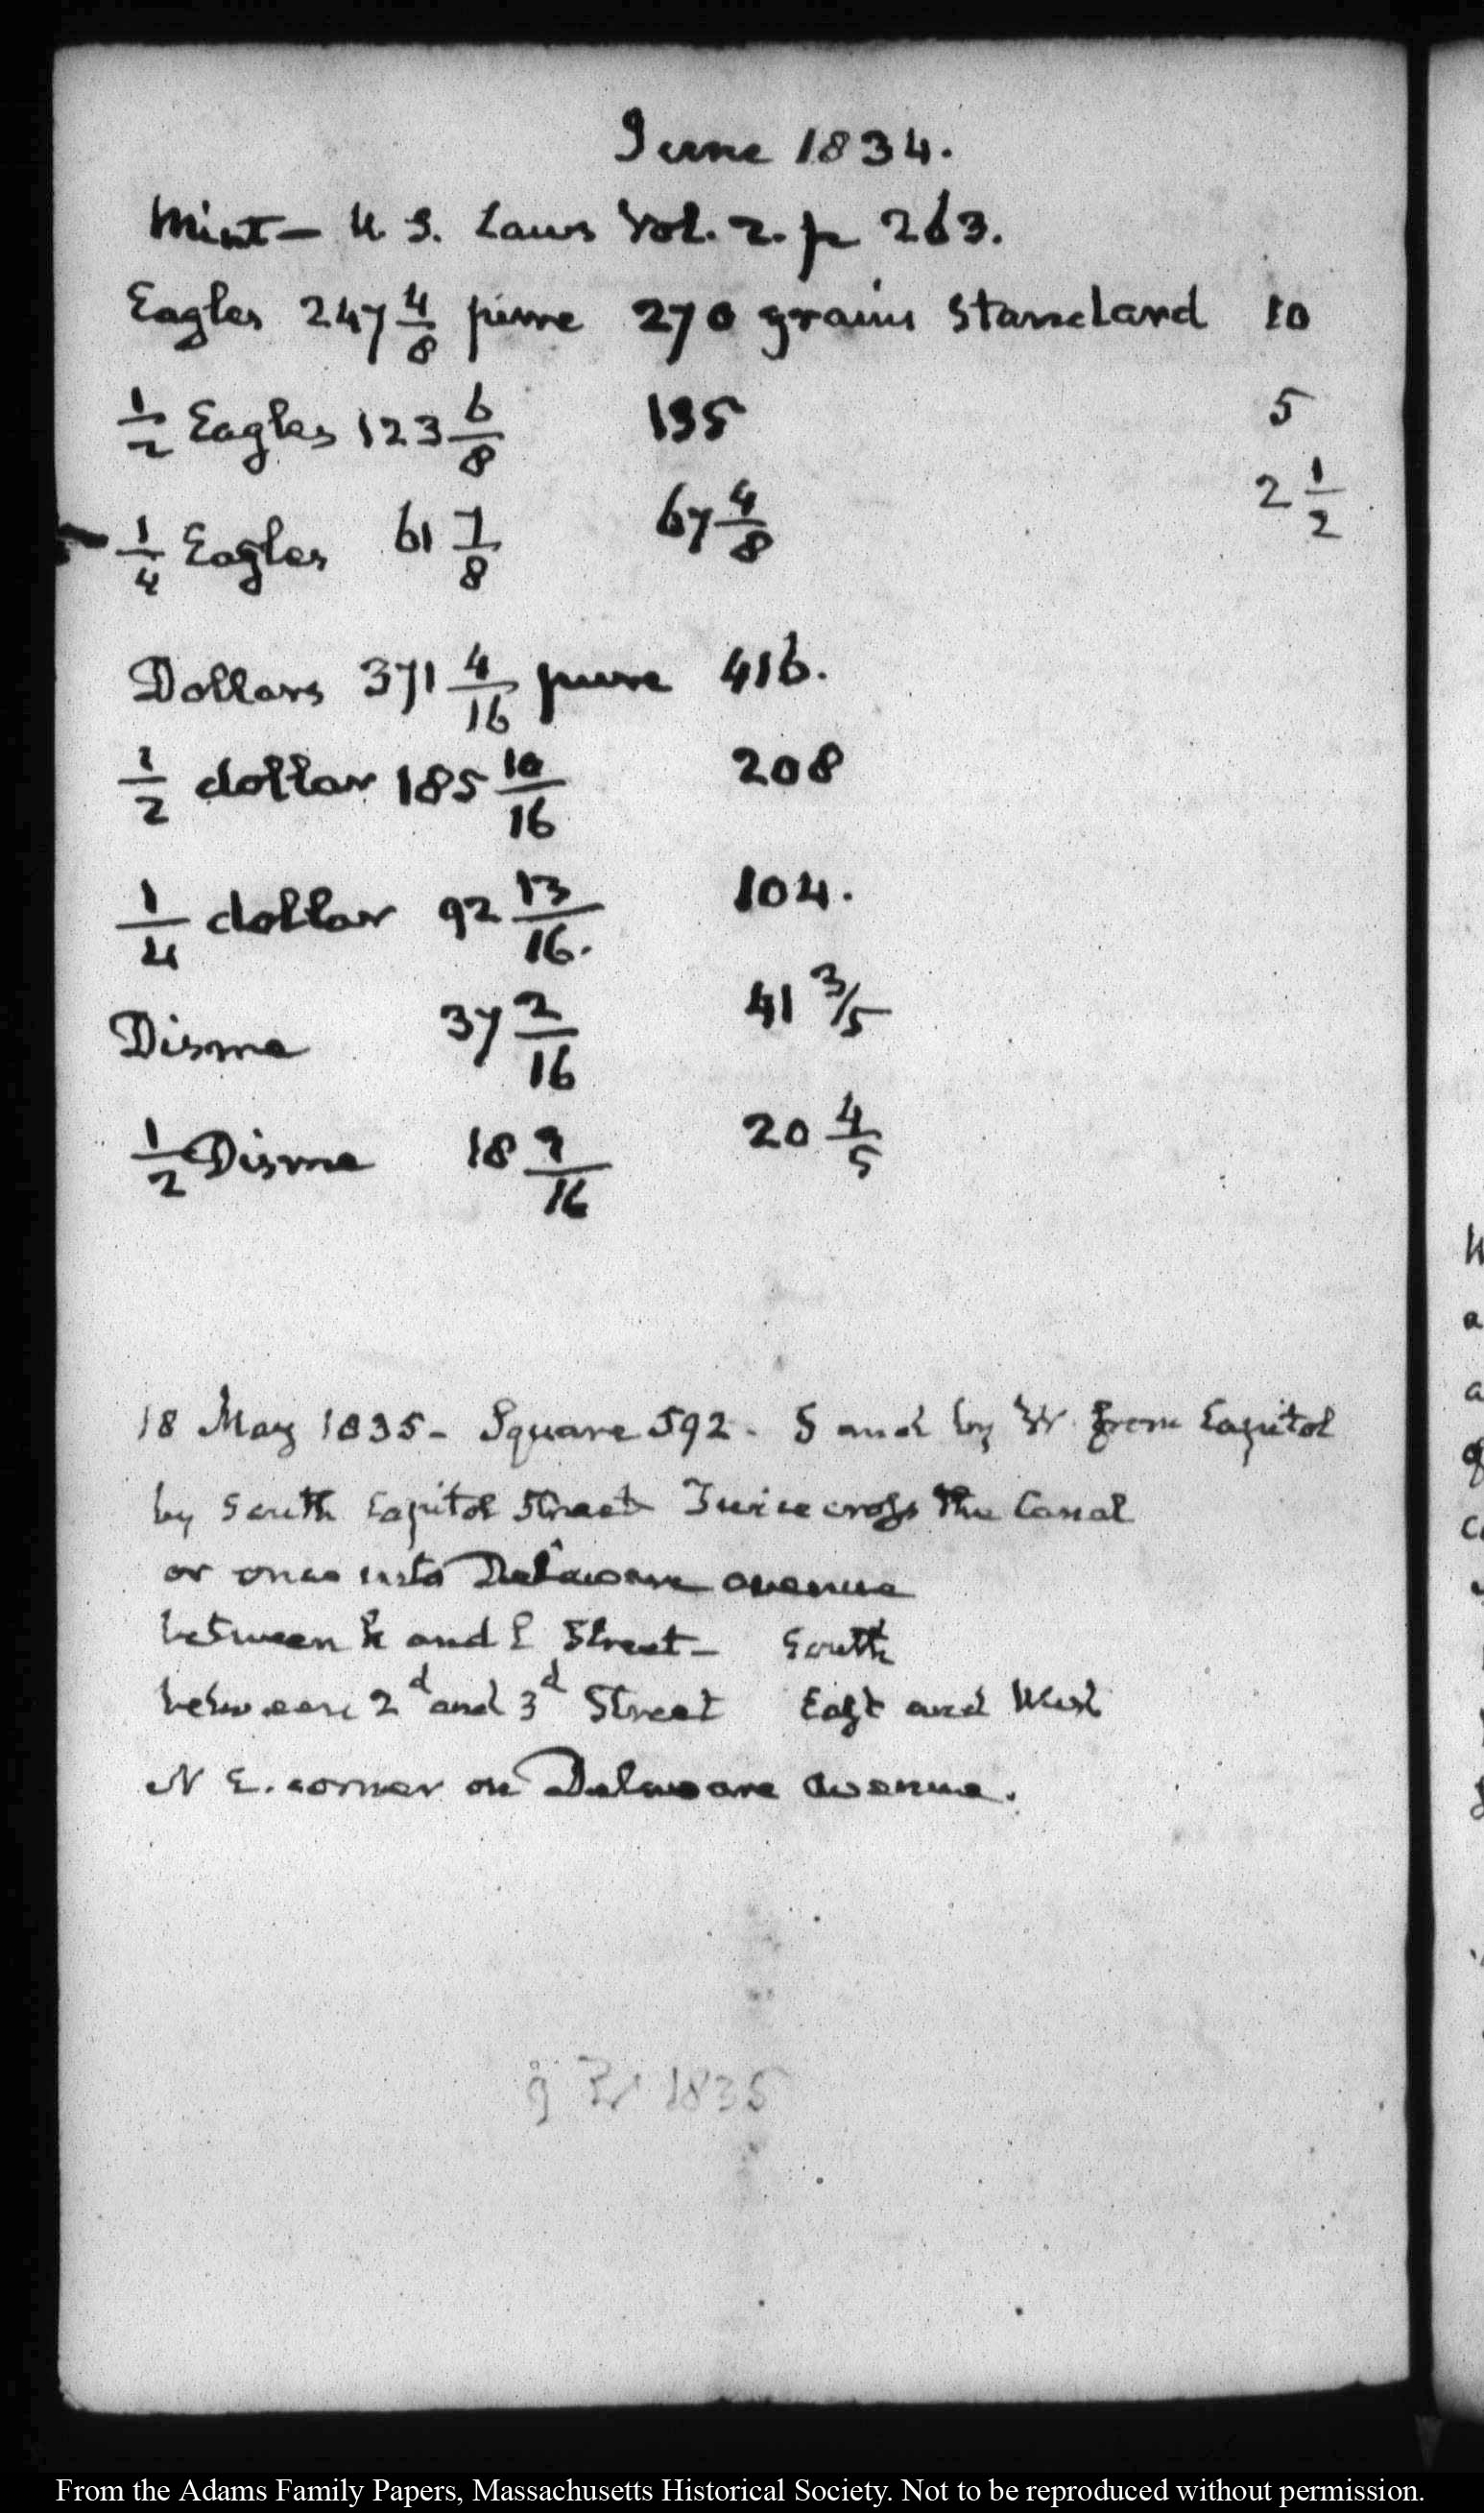 June 1834.
Mint — U. S. Laws Vol. 2. p 263.
Eagles 247 4/8 pure 270 grains Standard 10
1/2 Eagles 123 6/8 135 5
1/4 Eagles 61 7/8 67 4/8 2 1/2
Dollars 371 4/16 pure 416.
1/2 dollar 185 10/16 208
1/4 dollar 92 13/16. 104.
Disme 37 2/16 41 3/5
1/2 Disme 18 9/16 20 4/5
18 May 1835 - Square 592 - S and by W. from Capitol
by South Capitol Street Twice cross the Canal
or once into Delaware avenue
between and Street — South
between 2d and 3d Street East and West
N E. corner on Delaware Avenue.
1835
From the Adams Family Papers, Massachusetts Historical Society. Not to be reproduced without permission.